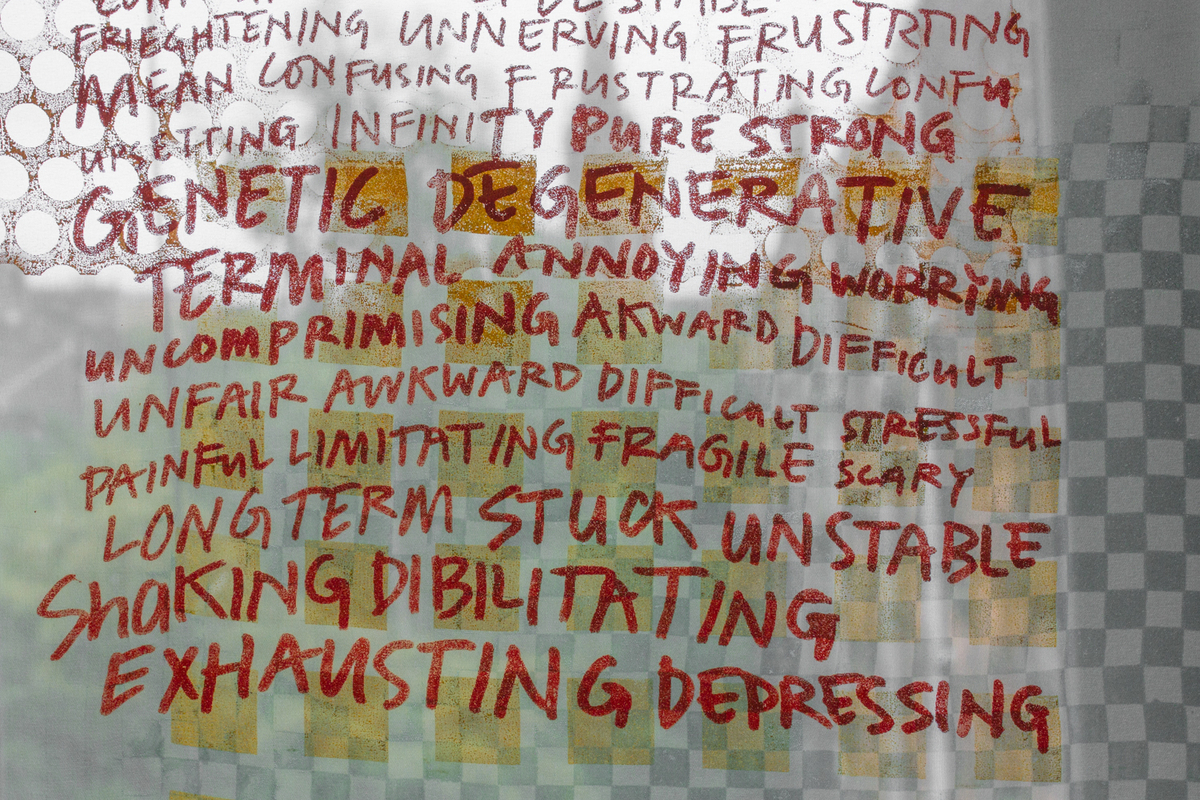 FRIEGHTENING UNNERVING FRUSTRTING
MEAN CONFUSING FRUSTRATING CONFU
UPSETTING INFINITY PURE STRONG
GENETIC DEGENERATIVE
TERMINAL ANNOYING WORRYING
UNCOMPRIMISING AKWARD DIFFICULT
UNFAIR AWKWARD DIFFICULT STRESSFUL
PAINFUL LIMITATING FRAGILE SCARY
LONG TERM STUCK UNSTABLE
ShaKING DIBILITATING
EXHAUSTING DEPRESSING